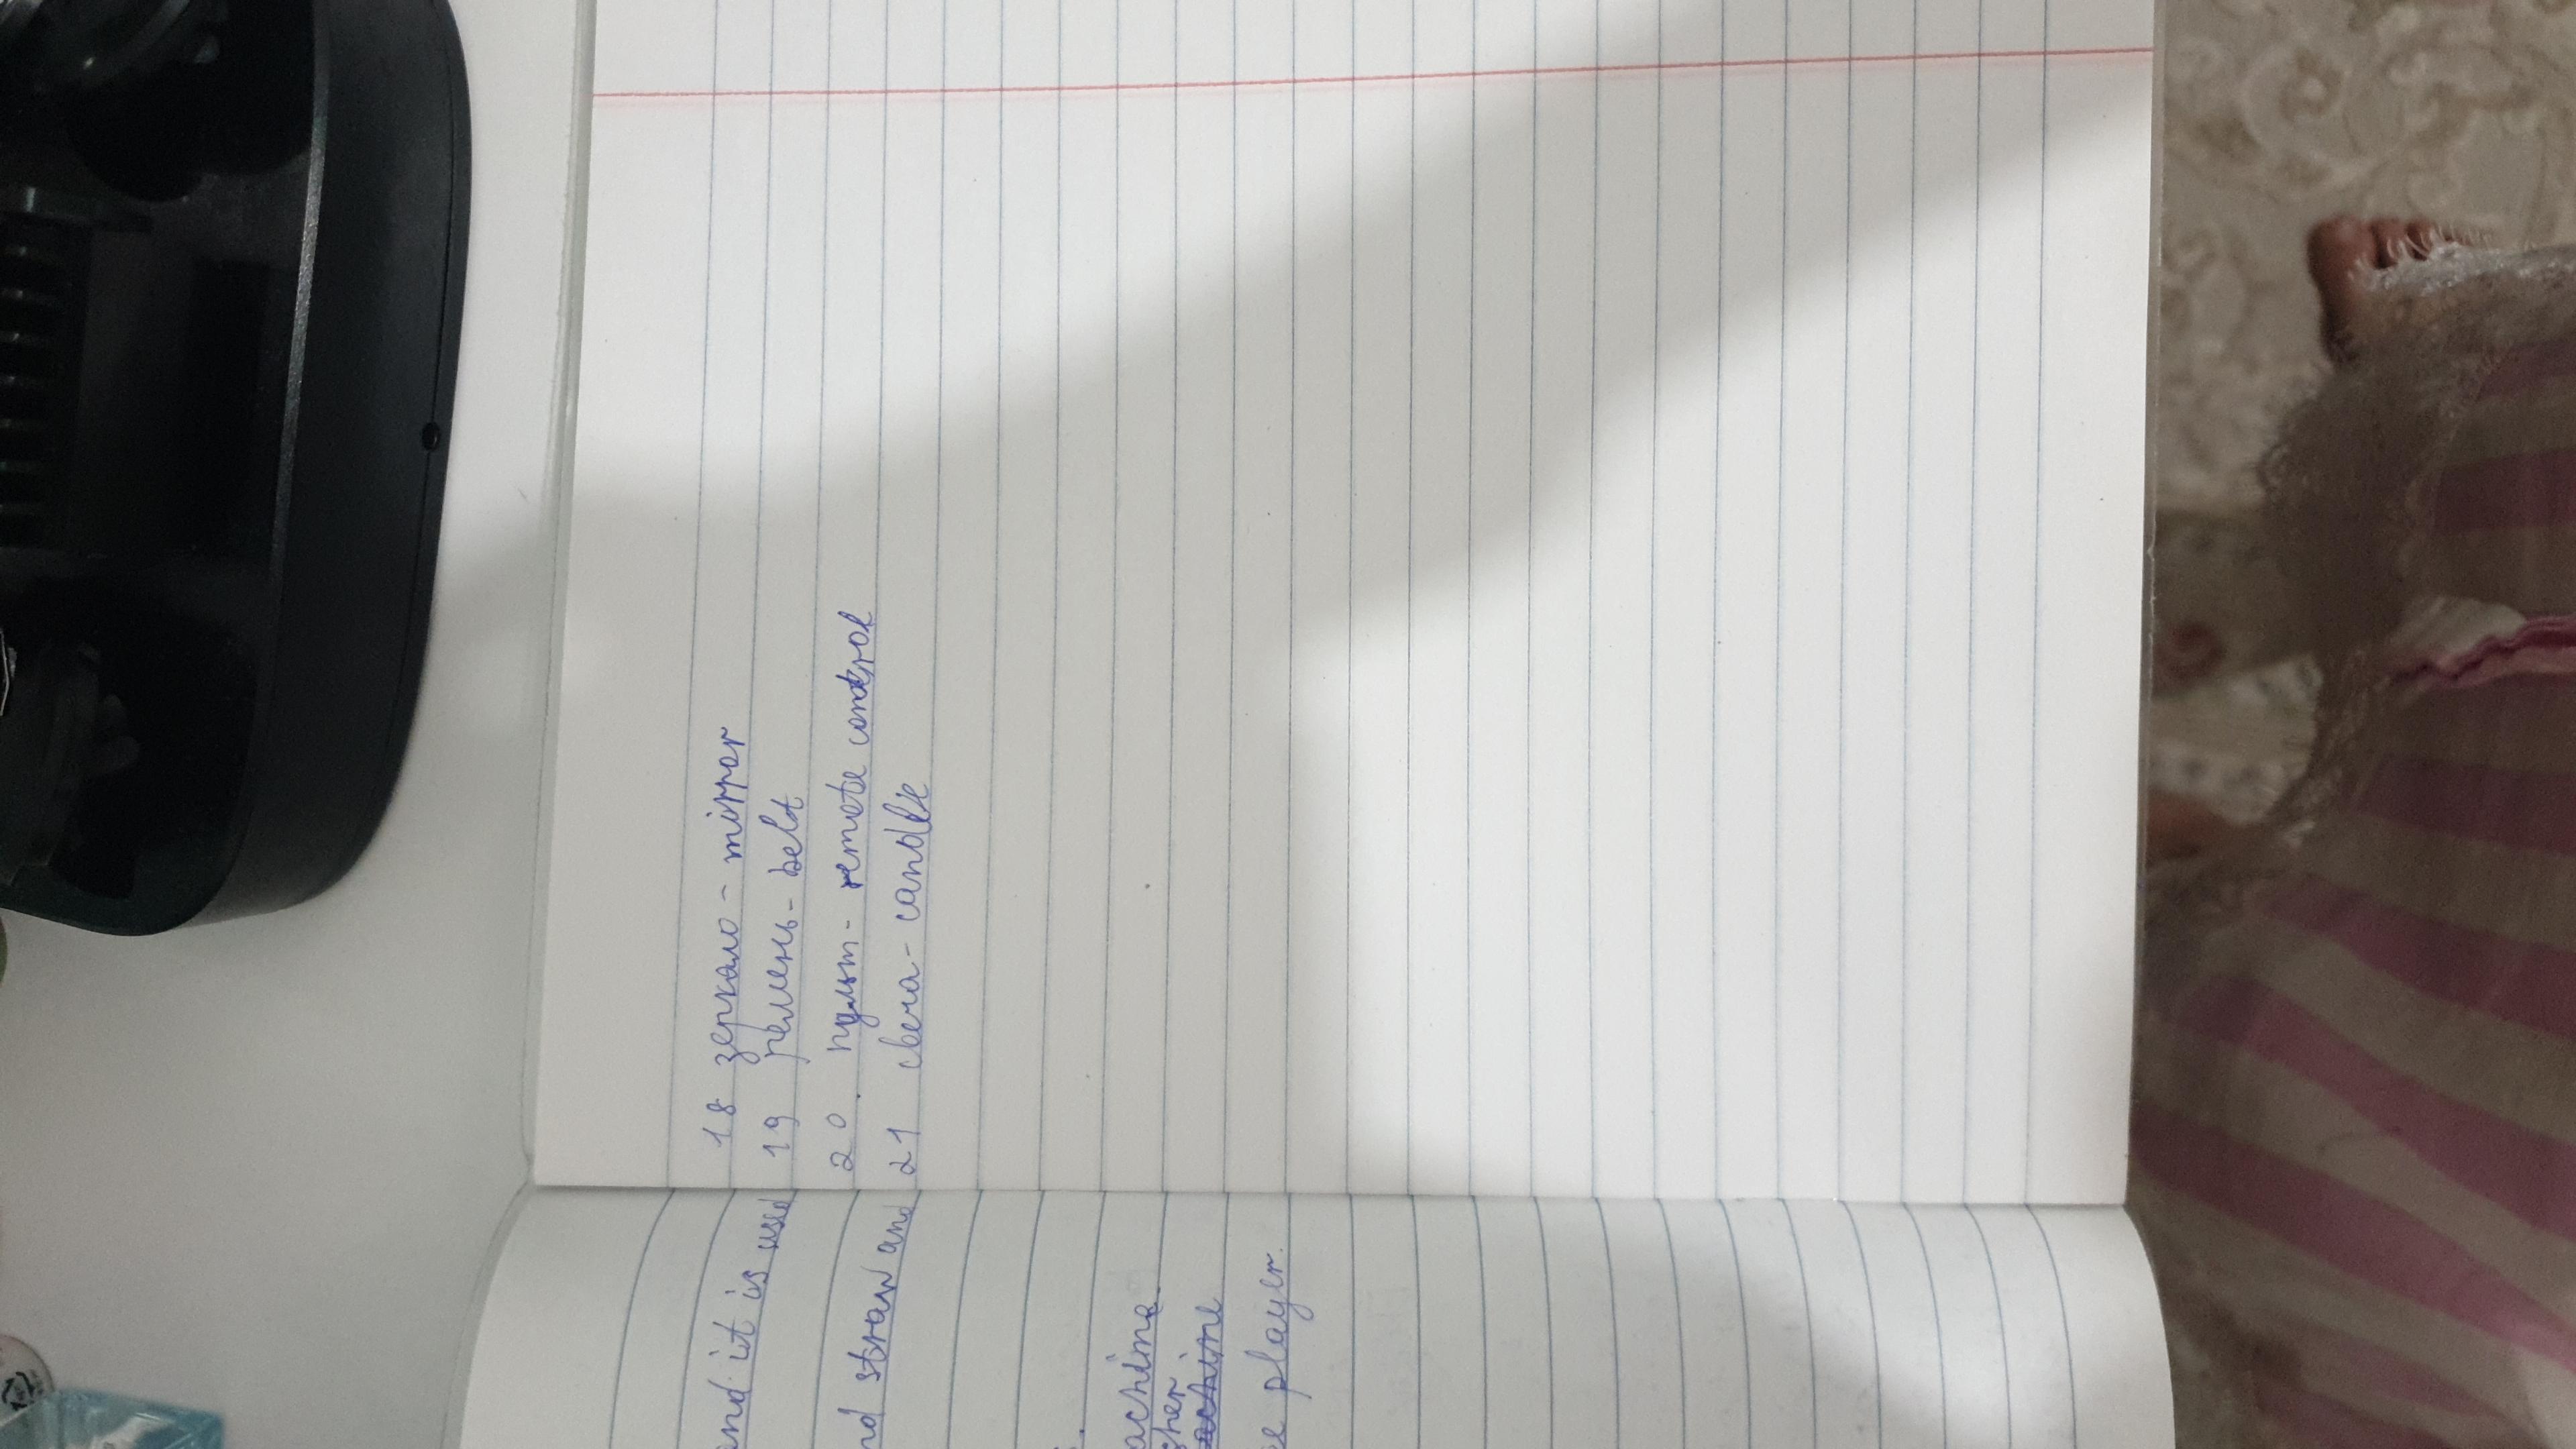 18 зеркало - mirror
19 ремень - belt
20. пульт - remote control
21 свеча - candle
and it is used
nd straw and
achine
sher
achine
e player.